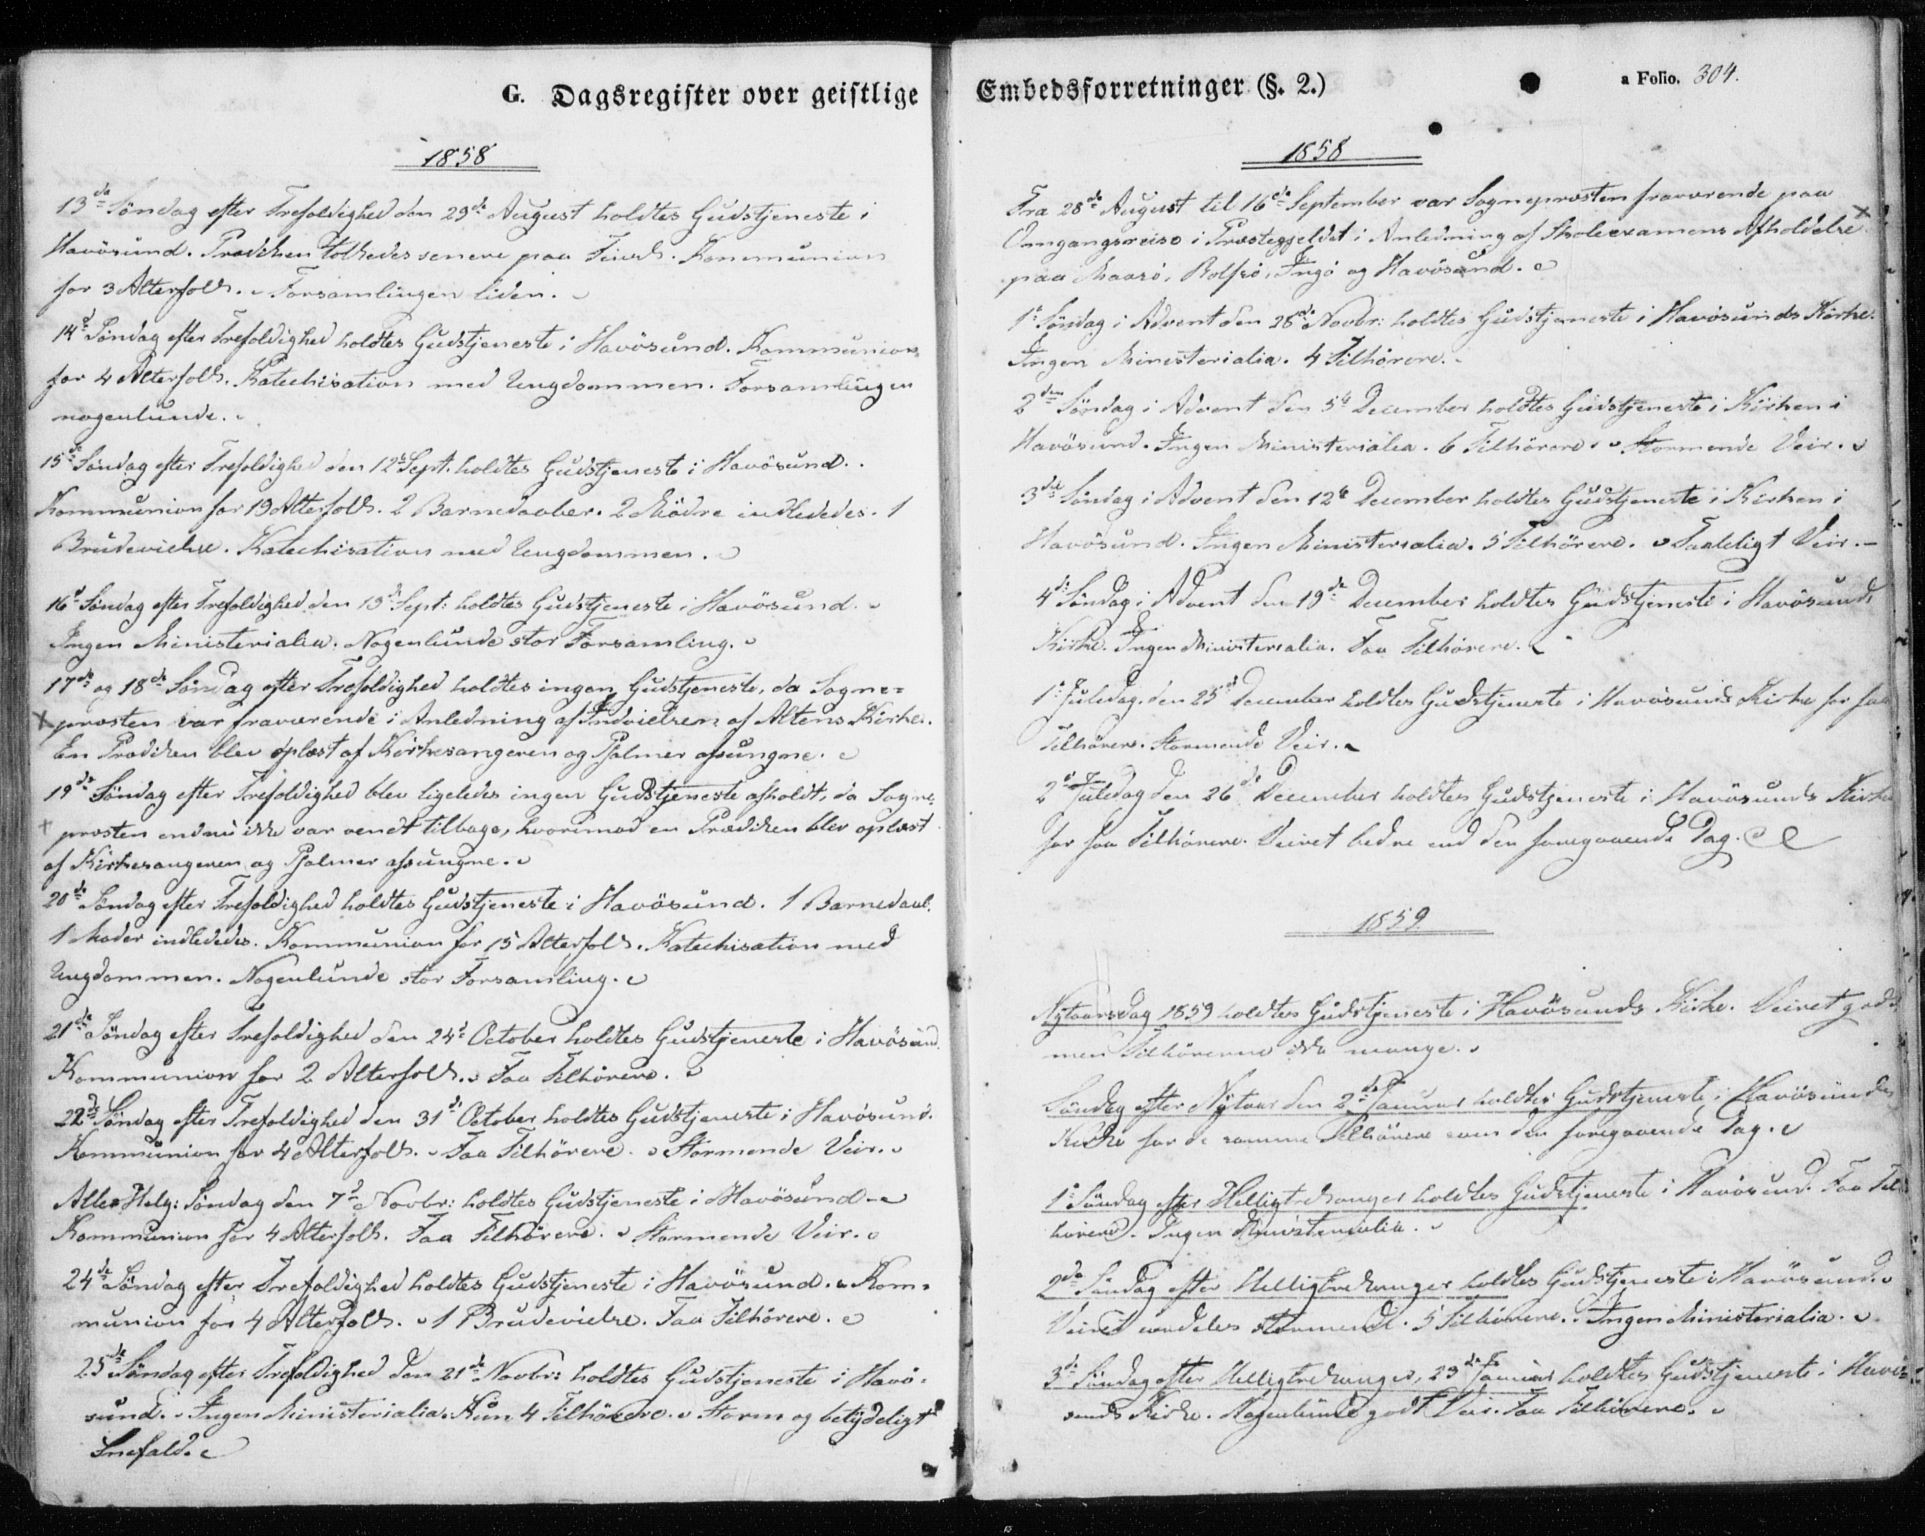 G. Dagsregister over geistlige
1858
13de Søndag efter Trefoldighed den 29de August holdtes Gudstjeneste i
Havösund. Prædiken tolkedes senere paa Kommunion
for 3 Alterfolk. Forsamlingen liden.
14de Søndag efter Trefoldighed holdtes Gudstjeneste i Havösund. Kommunion
for 4 Alterfolk. Katechisation med Ungdommen. Forsamlingen
nogenlunde.
15de Søndag efter Trefoldighed den 12te Sept. holdtes Gudstjeneste i Havösund.
Kommunion for 19 Alterfolk. 2 Barnedaaber. 2 Mödre indlededes. 1
Brudevielse. Katechisation med Ungdommen.
16de Søndag efter Trefoldighed den Sept: holdtes Gudstjeneste i Havösund.
Ingen Ministerialia. Nogenlunde stor Forsamling.
17de og 18de Søndag efter Trefoldighed holdtes ingen Gudstjeneste, da Sogne=
x præsten var fraværende i Anledning af Indvielsen af Altens Kirke.
En Prædiken blev oplæst af Kirkesangeren og Psalmer afsungne.
19de Søndag efter Trefoldighed blev ligeledes ingen Gudstjeneste afholdt, da Sogne-
+ præsten endnu ikke var vendt tilbage, hvorimod en Prædiken blev oplæst
af Kirkesangeren og Psalmer afsungne.
20de Søndag efter Trefoldighed holdtes Gudstjeneste i Havösund. 1 Barnedaab.
1 Moder indlededes. Kommunion for 15 Alterfolk. Katechisation med
Ungdommen. Nogenlunde stor Forsamling.
21de Søndag efter Trefoldighed den 24de October holdtes Gudstjeneste i Havösund.
Kommunion for 2 Alterfolk. Faa Tilhörere.
22de Søndag efter Trefoldighed den 31de October holdtes Gudstjeneste i Havösund.
Kommunion for 4 Alterfolk. Faa Tilhörere. Stormende Veir.
Alle Helg: Søndag den 7de Novbr: holdtes Gudstjeneste i Havösund
Kommunion for 4 Alterfolk. Faa Tilhörere. Stormende Veir.
24de Søndag efter Trefoldighed holdtes Gudstjeneste i Havösund. Kom=
munion for 4 Alterfolk. 1 Brudevielse. Faa Tilhörere.
25de Søndag efter Trefoldighed den 21de Novbr: holdtes Gudstjeneste i Havö-
sund. Ingen Ministerialia. Kun 4 Tilhörere. Storm og betydeligt
Snefald.
Embedsforretninger (§. 2.)
a Folio. 304.
1858
Fra 28de August til 16de September var Sognepræsten fraværende paa
Omgangsreise i Præstegjeldet i Anledning af Skoleexamens Afholdelse x
paa Maasö, Rolfsö, Ingö og Havösund.
1ste Søndag i Advent den 28de Novbr: holdtes Gudstjeneste i Havösunds Kirke.
Ingen Ministerialia. 4 Tilhörere.
2den Søndag i Advent den 5te December holdtes Gudstjeneste i Kirken i
Havösund. Ingen Ministerialia. 6 Tilhörere. Stormende Veir.
3die Søndag i Advent den 12te December holdtes Gudstjeneste i Kirken i
Havösund. Ingen Ministerialia. 5 Tilhörere. Taaleligt Veir.
4de Søndag i Advent den 19de December holdtes Gudstjeneste i Havösunds
Kirke. Ingen Ministerialia. Faa Tilhörere.
1ste Juledag den 25de December holdtes Gudstjeneste i Havösunds Kirke for faa
Tilhörere. Stormende Veir.
2den Juledag den 26de December holdtes Gudstjeneste i Havösunds Kirke
for faa Tilhörere. Veiret bedre end den foregaaende Dag.
1859
Nytaarsdag 1859 holdtes Gudstjeneste i Havösunds Kirke. Veiret godt
men Tilhörerne ikke mange.
Søndag efter Nytaar den 2den Januar holdtes Gudstjeneste i Havösunds
Kirke for de samme Tilhörere som den foregaaende Dag.
1ste Søndag efter Helligtrekonger holdtes Gudstjeneste i Havösund. Faa Til
hörere. Ingen Ministerialia.
2den Søndag efter Helligtrekonger holdtes Gudstjeneste i Havösund.
Veiret stormende. 5 Tilhörere. Ingen Ministerialia.
3die Søndag efter Helligtrekonger, 23de Januar holdtes Gudstjeneste i Havö-
sunds Kirke. Nogenlunde godt Veir. Faa Tilhörere.